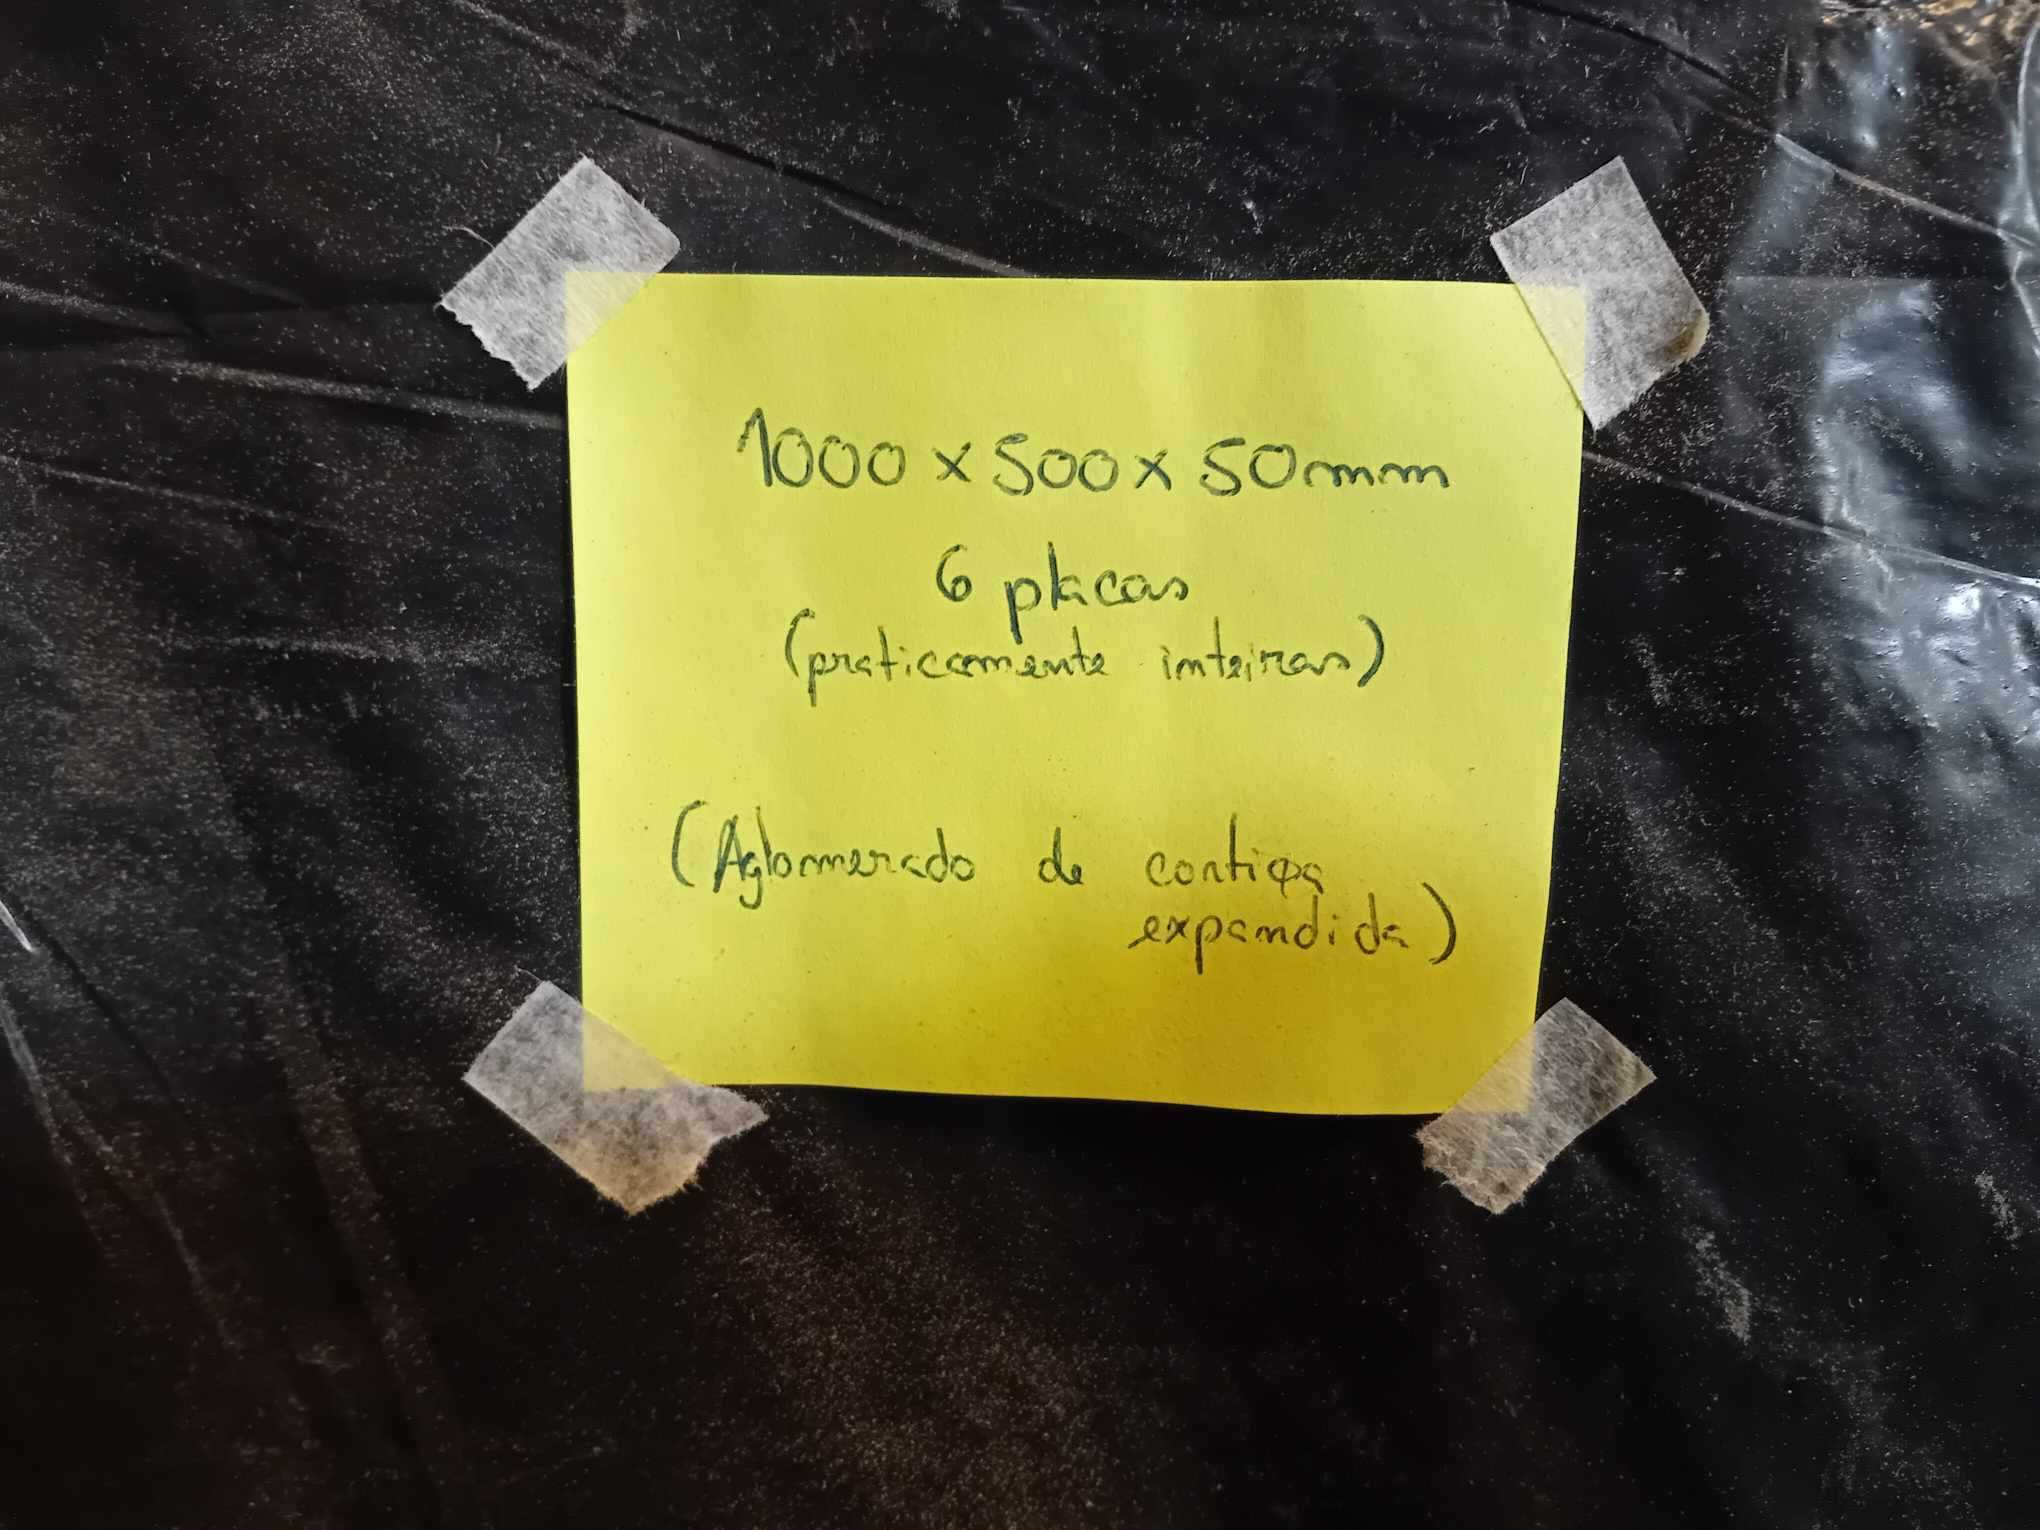 1000 x 500 x 50mm
6 placas
(praticamente inteiras)
(Aglomerado de cortiça
expandida)